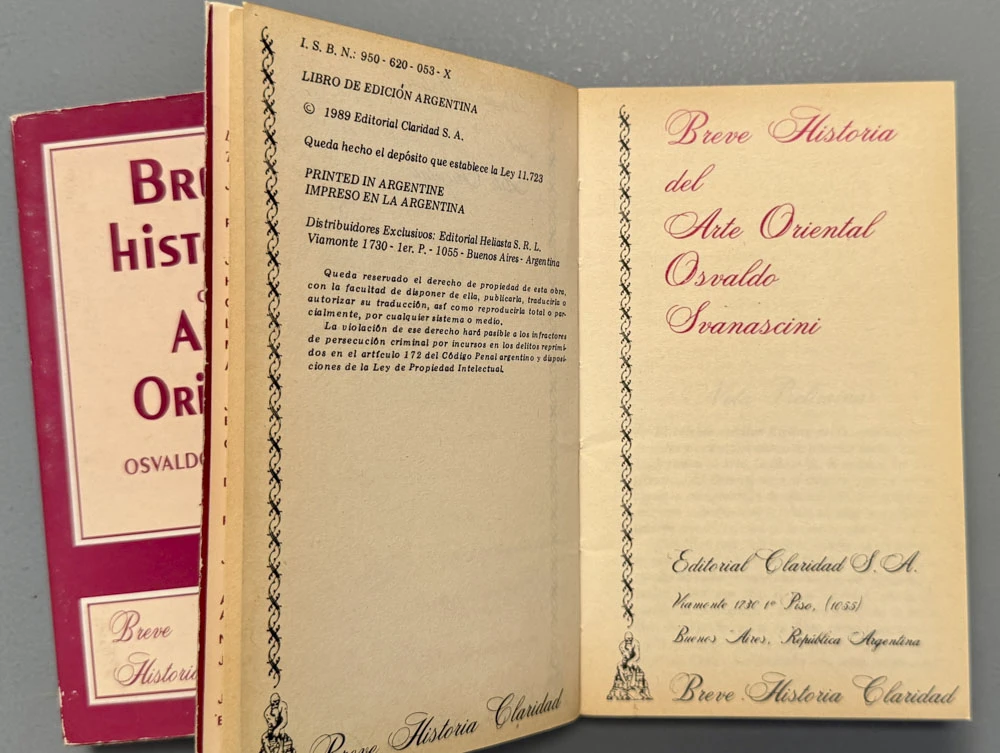 BR
hist
A
Ori
OSVALDO
Breve
Historia
I. S. B. N.: 950 - 620 - 053 - X
LIBRO DE EDICIÓN ARGENTINA
© 1989 Editorial Claridad S. A.
Queda hecho el depósito que establece la Ley 11.723
PRINTED IN ARGENTINE
IMPRESO EN LA ARGENTINA
Distribuidores Exclusivos: Editorial Heliasta S. R. L.
Viamonte 1730 - 1er. P. - 1055 - Buenos Aires - Argentina
Queda reservado el derecho de propiedad de esta obra,
con la facultad de disponer de ella, publicarla, traducirla o
autorizar su traducción, así como reproducirla total o par-
cialmente, por cualquier sistema o medio.
La violación de ese derecho hará pasible a los infractores
de persecución criminal por incursos en los delitos reprimi-
dos en el artículo 172 del Código Penal argentino y disposi-
ciones de la Ley de Propiedad Intelectual.
Breve Historia Claridad
Breve Historia
del
Arte Oriental
Osvaldo
Svanascini
Editorial Claridad S. A.
Viamonte 1730 1º Piso, (1055)
Buenos Aires, República Argentina
Breve Historia Claridad